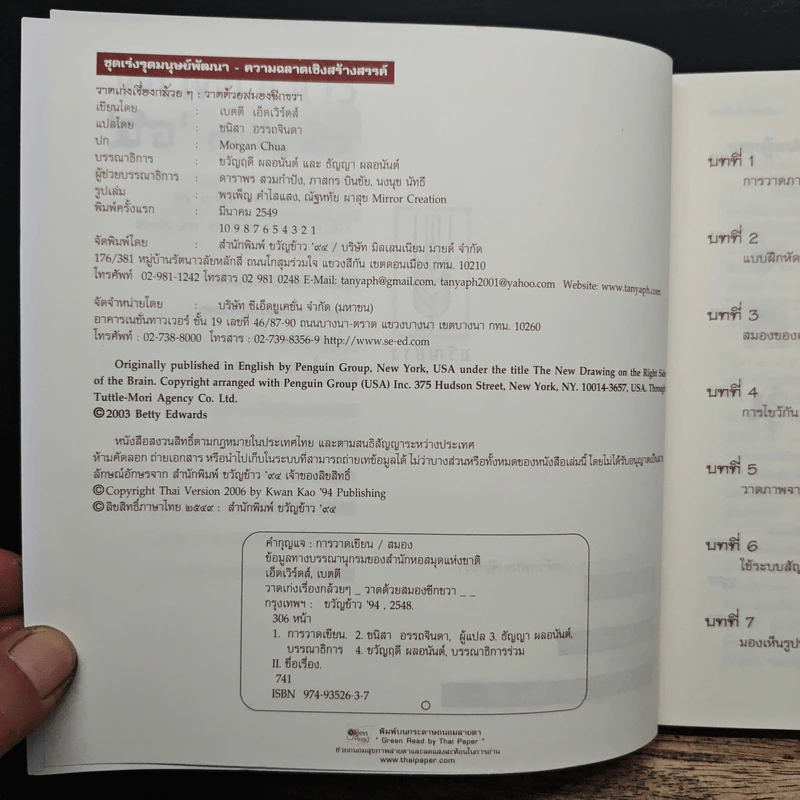 ชุดเร่งรุดมนุษย์พัฒนา - ความฉลาดเชิงสร้างสรรค์
วาดเก่งเรื่องกล้วย ๆ : วาดด้วยสมองซีกขวา
เขียนโดย : เบตตี เอ็ดเวิร์ดส์
แปลโดย : ชนิสา อรรถจินดา
ปก : Morgan Chua
บรรณาธิการ : ขวัญฤดี ผลอนันต์ และ ธัญญา ผลอนันต์
ผู้ช่วยบรรณาธิการ : ดาราพร สวมกำปัง, ภาสกร บินชัย, นงนุช นัทธี
รูปเล่ม : พรเพ็ญ คำไสแสง, ณัฐหทัย ผาสุข Mirror Creation
พิมพ์ครั้งแรก : มีนาคม 2549
10 9 8 7 6 5 4 3 2 1
จัดพิมพ์โดย : สำนักพิมพ์ ขวัญข้าว '๙๔ / บริษัท มิลเลนเนียม มายด์ จำกัด
176/381 หมู่บ้านรัตนาวลัยหลักสี่ ถนนโกสุมร่วมใจ แขวงสีกัน เขตดอนเมือง กทม. 10210
โทรศัพท์ 02-981-1242 โทรสาร 02 981 0248 E-Mail: tanyaph@gmail.com, tanyaph2001@yahoo.com Website: www.tanyaph.com
จัดจำหน่ายโดย : บริษัท ซีเอ็ดยูเคชั่น จำกัด (มหาชน)
อาคารเนชั่นทาวเวอร์ ชั้น 19 เลขที่ 46/87-90 ถนนบางนา-ตราด แขวงบางนา เขตบางนา กทม. 10260
โทรศัพท์ : 02-738-8000 โทรสาร : 02-739-8356-9 http://www.se-ed.com
Originally published in English by Penguin Group, New York, USA under the title The New Drawing on the Right Side
of the Brain. Copyright arranged with Penguin Group (USA) Inc. 375 Hudson Street, New York, NY. 10014-3657, USA. Through
Tuttle-Mori Agency Co. Ltd.
©2003 Betty Edwards
หนังสือสงวนสิทธิ์ตามกฎหมายในประเทศไทย และตามสนธิสัญญาระหว่างประเทศ
ห้ามคัดลอก ถ่ายเอกสาร หรือนำไปเก็บในระบบที่สามารถถ่ายเทข้อมูลได้ ไม่ว่าบางส่วนหรือทั้งหมดของหนังสือเล่มนี้ โดยไม่ได้รับอนุญาตเป็น
ลักษณ์อักษรจาก สำนักพิมพ์ ขวัญข้าว '๙๔ เจ้าของลิขสิทธิ์
©Copyright Thai Version 2006 by Kwan Kao '94 Publishing
©ลิขสิทธิ์ภาษาไทย ๒๕๔๙ : สำนักพิมพ์ ขวัญข้าว '๙๔
คำกุญแจ : การวาดเขียน / สมอง
ข้อมูลทางบรรณานุกรมของสำนักหอสมุดแห่งชาติ
เอ็ดเวิร์ดส์, เบตตี
วาดเก่งเรื่องกล้วยๆ _ วาดด้วยสมองซีกขวา _ _
กรุงเทพฯ : ขวัญข้าว '94 , 2548.
306 หน้า
1. การวาดเขียน. 2. ชนิสา อรรถจินดา, ผู้แปล 3. ธัญญา ผลอนันต์,
บรรณาธิการ 4. ขวัญฤดี ผลอนันต์, บรรณาธิการร่วม
II. ชื่อเรื่อง.
741
ISBN 974-93526-3-7
Green Read
พิมพ์บนกระดาษถนอมสายตา
" Green Read by Thai Paper "
ช่วยถนอมสุขภาพสายตาและลดแสงสะท้อนในการอ่าน
www.thaipaper.com
บทที่ 1
การวาดภา
บทที่ 2
แบบฝึกหัด
บทที่ 3
สมองของ
บทที่ 4
การไขว้กัน
บทที่ 5
วาดภาพจา
บทที่ 6
ใช้ระบบสัญ
บทที่ 7
มองเห็นรูป